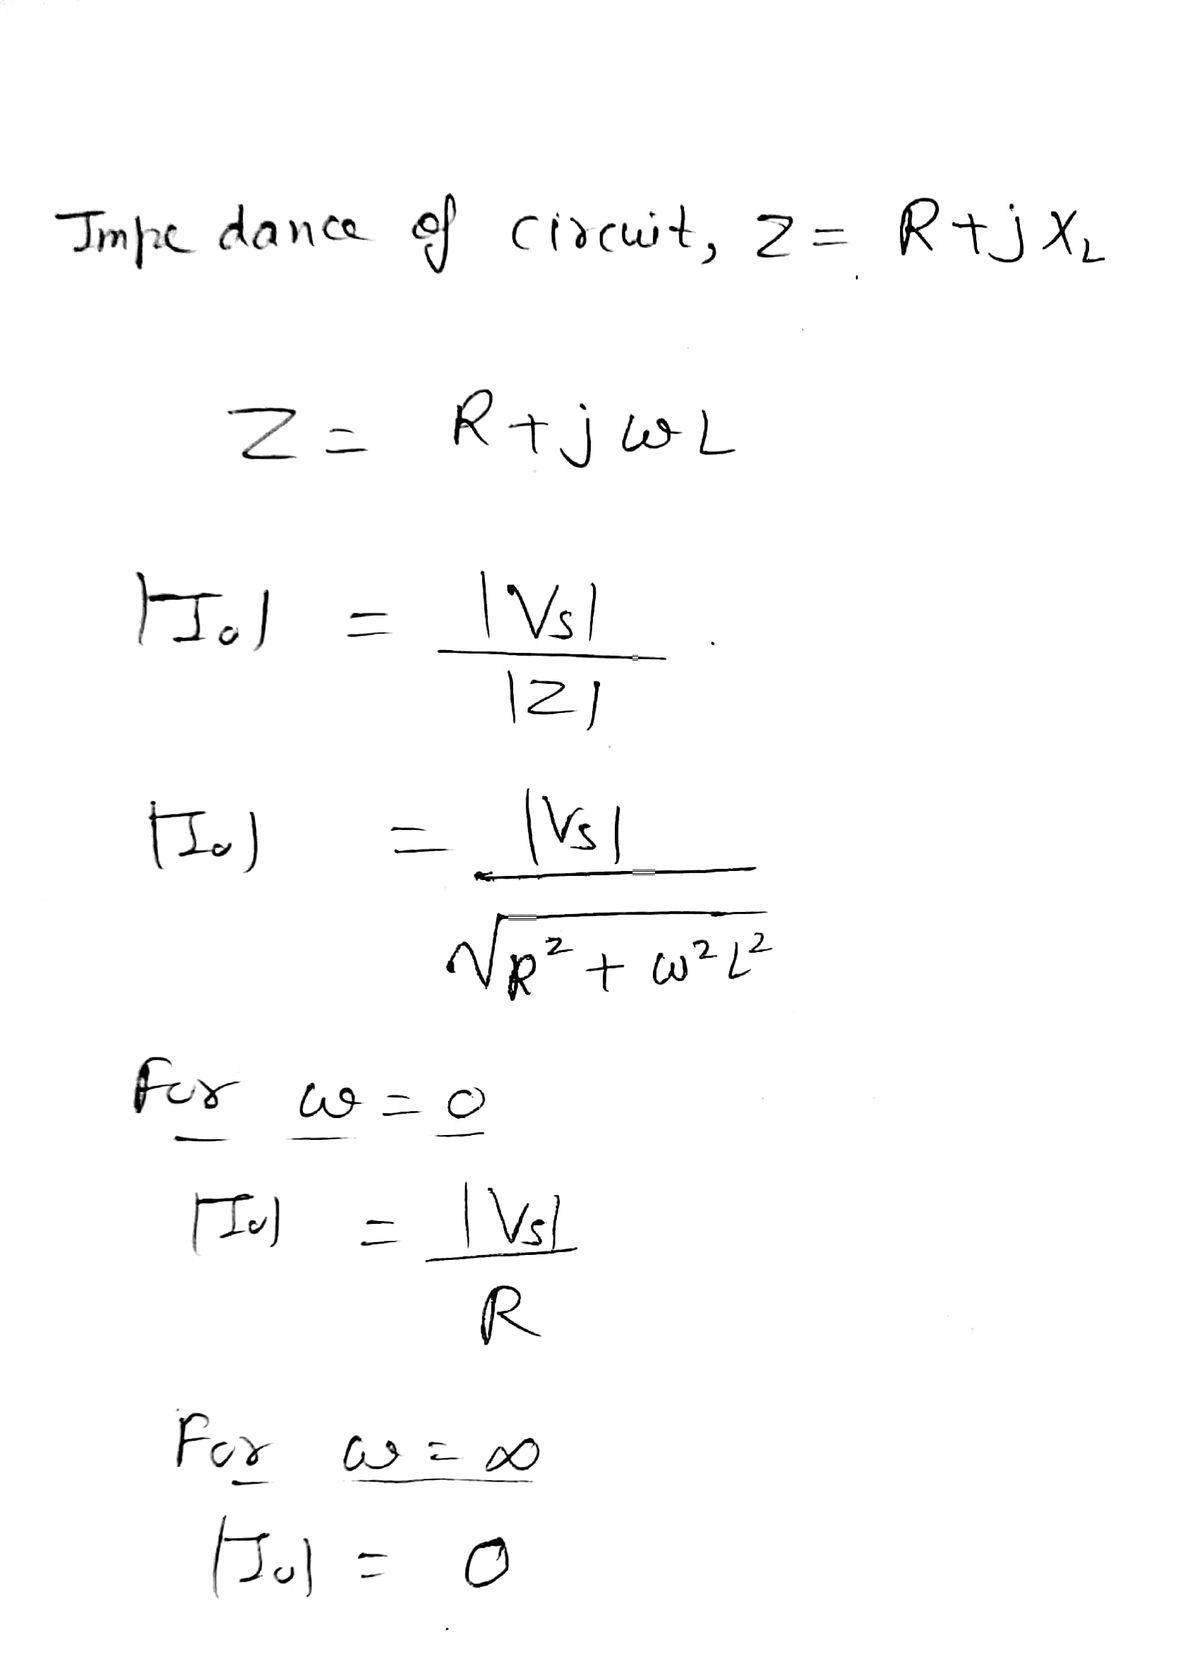 Impedance of circuit, Z = R + j X_L
Z = R + j ω L
|I₀| = |Vs| / |Z|
|I₀| = |Vs| / √(R² + ω² L²)
For ω = 0
|I₀| = |Vs| / R
For ω = ∞
|I₀| = 0